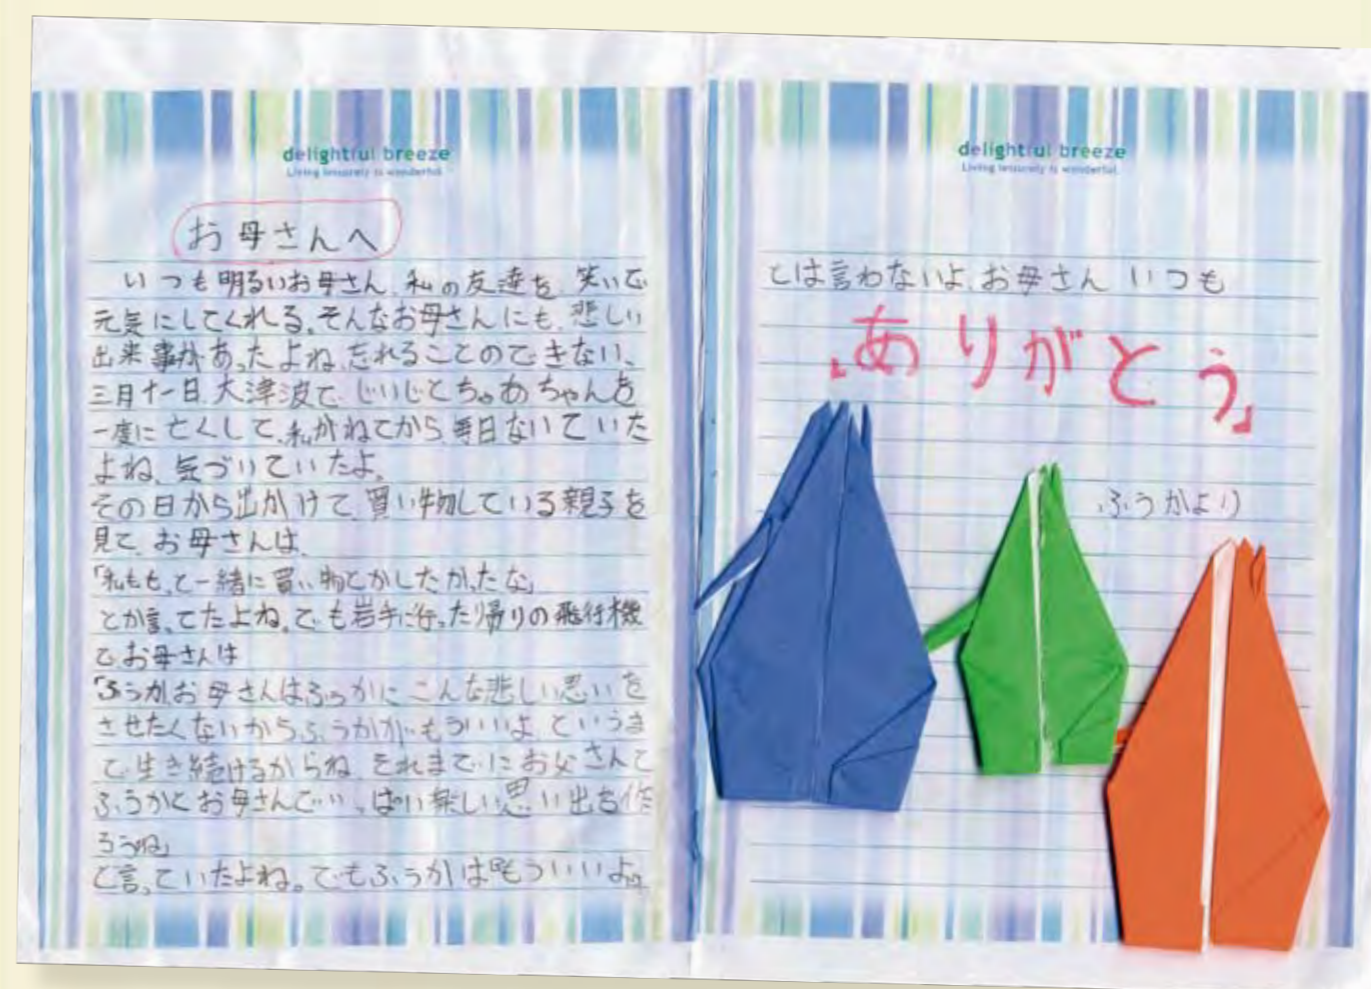 delightful breeze
Living leisurely is wonderful.
お母さんへ
いつも明るいお母さん、私の友達を、笑いで
元気にしてくれる。そんなお母さんにも、悲しい
出来事があったよね。忘れることのできない、
三月十一日、大津波で、じいじとちゃあちゃんを
一度に亡くして、私がねてから毎日ないていた
よね、気づいていたよ。
その日から出かけて、買い物している親子を
見て、お母さんは、
「私ももっと一緒に買い物とかしたかったな」
とか言ってたよね。でも岩手に行った帰りの飛行機
でお母さんは
「ふうか、お母さんはふうかにこんな悲しい思いを
させたくないからふうかが、もういいよ、というま
で生き続けるからね、それまでにお父さんと
ふうかとお母さんでいっぱい楽しい思い出を作
ろうね」
と言っていたよね。でもふうかは『もういいよ』
delightful breeze
Living leisurely is wonderful.
とは言わないよ、お母さん いつも
「ありがとう」
ふうかより